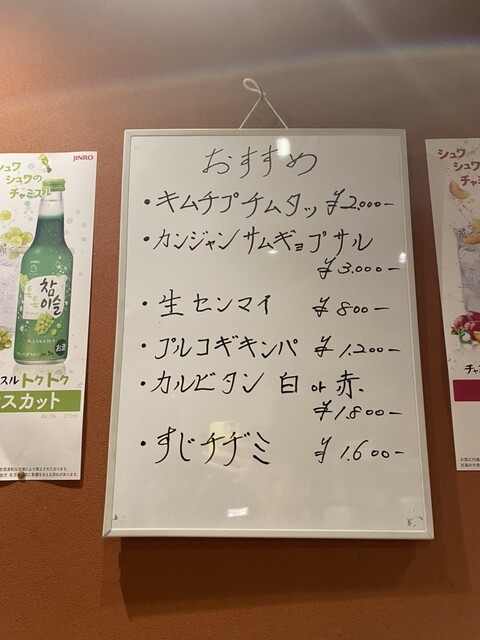 おすすめ
・キムチプチムタッ ¥2.000-
・カンジャンサムギョプサル
¥3.000-
・生センマイ ¥800-
・プルコギキンパ ¥1.200-
・カルビタン 白 or 赤.
¥1.800-
・すじチヂミ ¥1.600-
JINRO
シュワ
シュワの
チャミスル
참
이슬
お酒
スル トクトク
スカット
シュワ
シュワ
チャミ